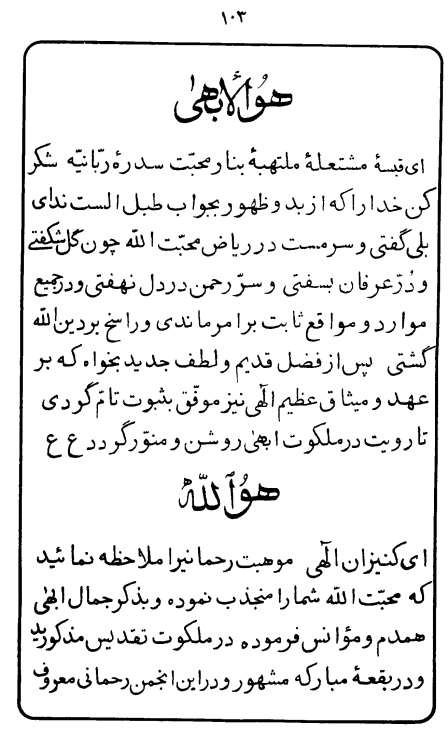 ۱۰۳
هوالأبهی
ای قبسهٔ مشتعلهٔ ملتهبهٔ بنار محبّت سدرهٔ ربّانیّه شکر
کن خدا را که از بدو ظهور بجواب طبل الست ندای
بلی گفتی و سرمست در ریاض محبّت اللّه چون گل شکفتی
و دُرّ عرفان بسفتی و سرّ رحمن در دل نهفتی و در جمیع
موارد و مواقع ثابت بر امر ماندی و راسخ بر دین اللّه
گشتی پس از فضل قدیم و لطف جدید بخواه که بر
عهد و میثاق عظیم الهی نیز موفّق بثبوت تامّ گردی
تا رویت در ملکوت ابهی روشن و منوّر گردد ع ع
هواللّه
ای کنیزان الهی موهبت رحمانیرا ملاحظه نمائید
که محبّت اللّه شما را منجذب نموده و بذکر جمال ابهی
همدم و مؤانس فرموده در ملکوت تقدیس مذکورید
و در بقعهٔ مبارکه مشهور و در این انجمن رحمانی معروف